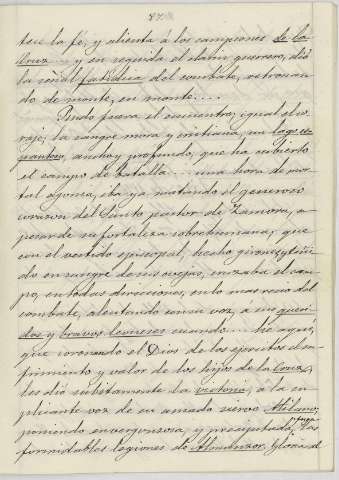 ten la fé, y alienta á los campeones de la
Cruz y en seguida el clarin guerrero, dió
la señal fatidica del combate, retronan-
do de monte, en monte....
Rudo fuera el encuentro, igual el co-
raje, la sangre mora y cristiana, un lago es-
pantoso, ancho y profundo, que ha cubierto
el campo de batalla... una hora de mor-
tal agonia, iba ya matando el generoso
corazon del Santo pastor de Zamora, a-
pesar de su fortaleza sobrehumana; que
con el vestido episcopal, hecho girones y teñi-
do en sangre de sus ovejas, cruzaba el cam-
po, en todas direcciones, en lo mas recio del
combate, alentando con su voz, á sus queri-
dos y bravos leoneses cuando... he aqui,
que coronando el Dios de los ejercitos el su-
frimiento y valor de los hijos de la Cruz,
les dió subitamente la victoria, á la su-
plicante voz de su amado siervo Atilano,
poniendo en vergonzosa, y precipitada fuga las
formidables legiones de Almanzor. Gloria al